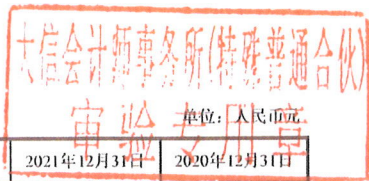 大信会计师事务所(特殊普通合伙)
审验专用章
单位：人民币元
2021年12月31日 2020年12月31日